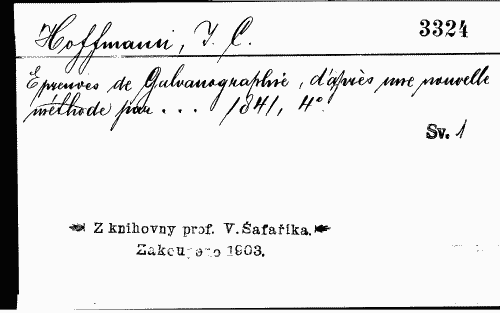 Hoffmann, J. C. 3324
Epreuves de Galvanographie, d'après une nouvelle
méthode par . . . 1841, 4°.
Sv. 1
Z knihovny prof. V. Šafaříka.
Zakoupeno 1903.